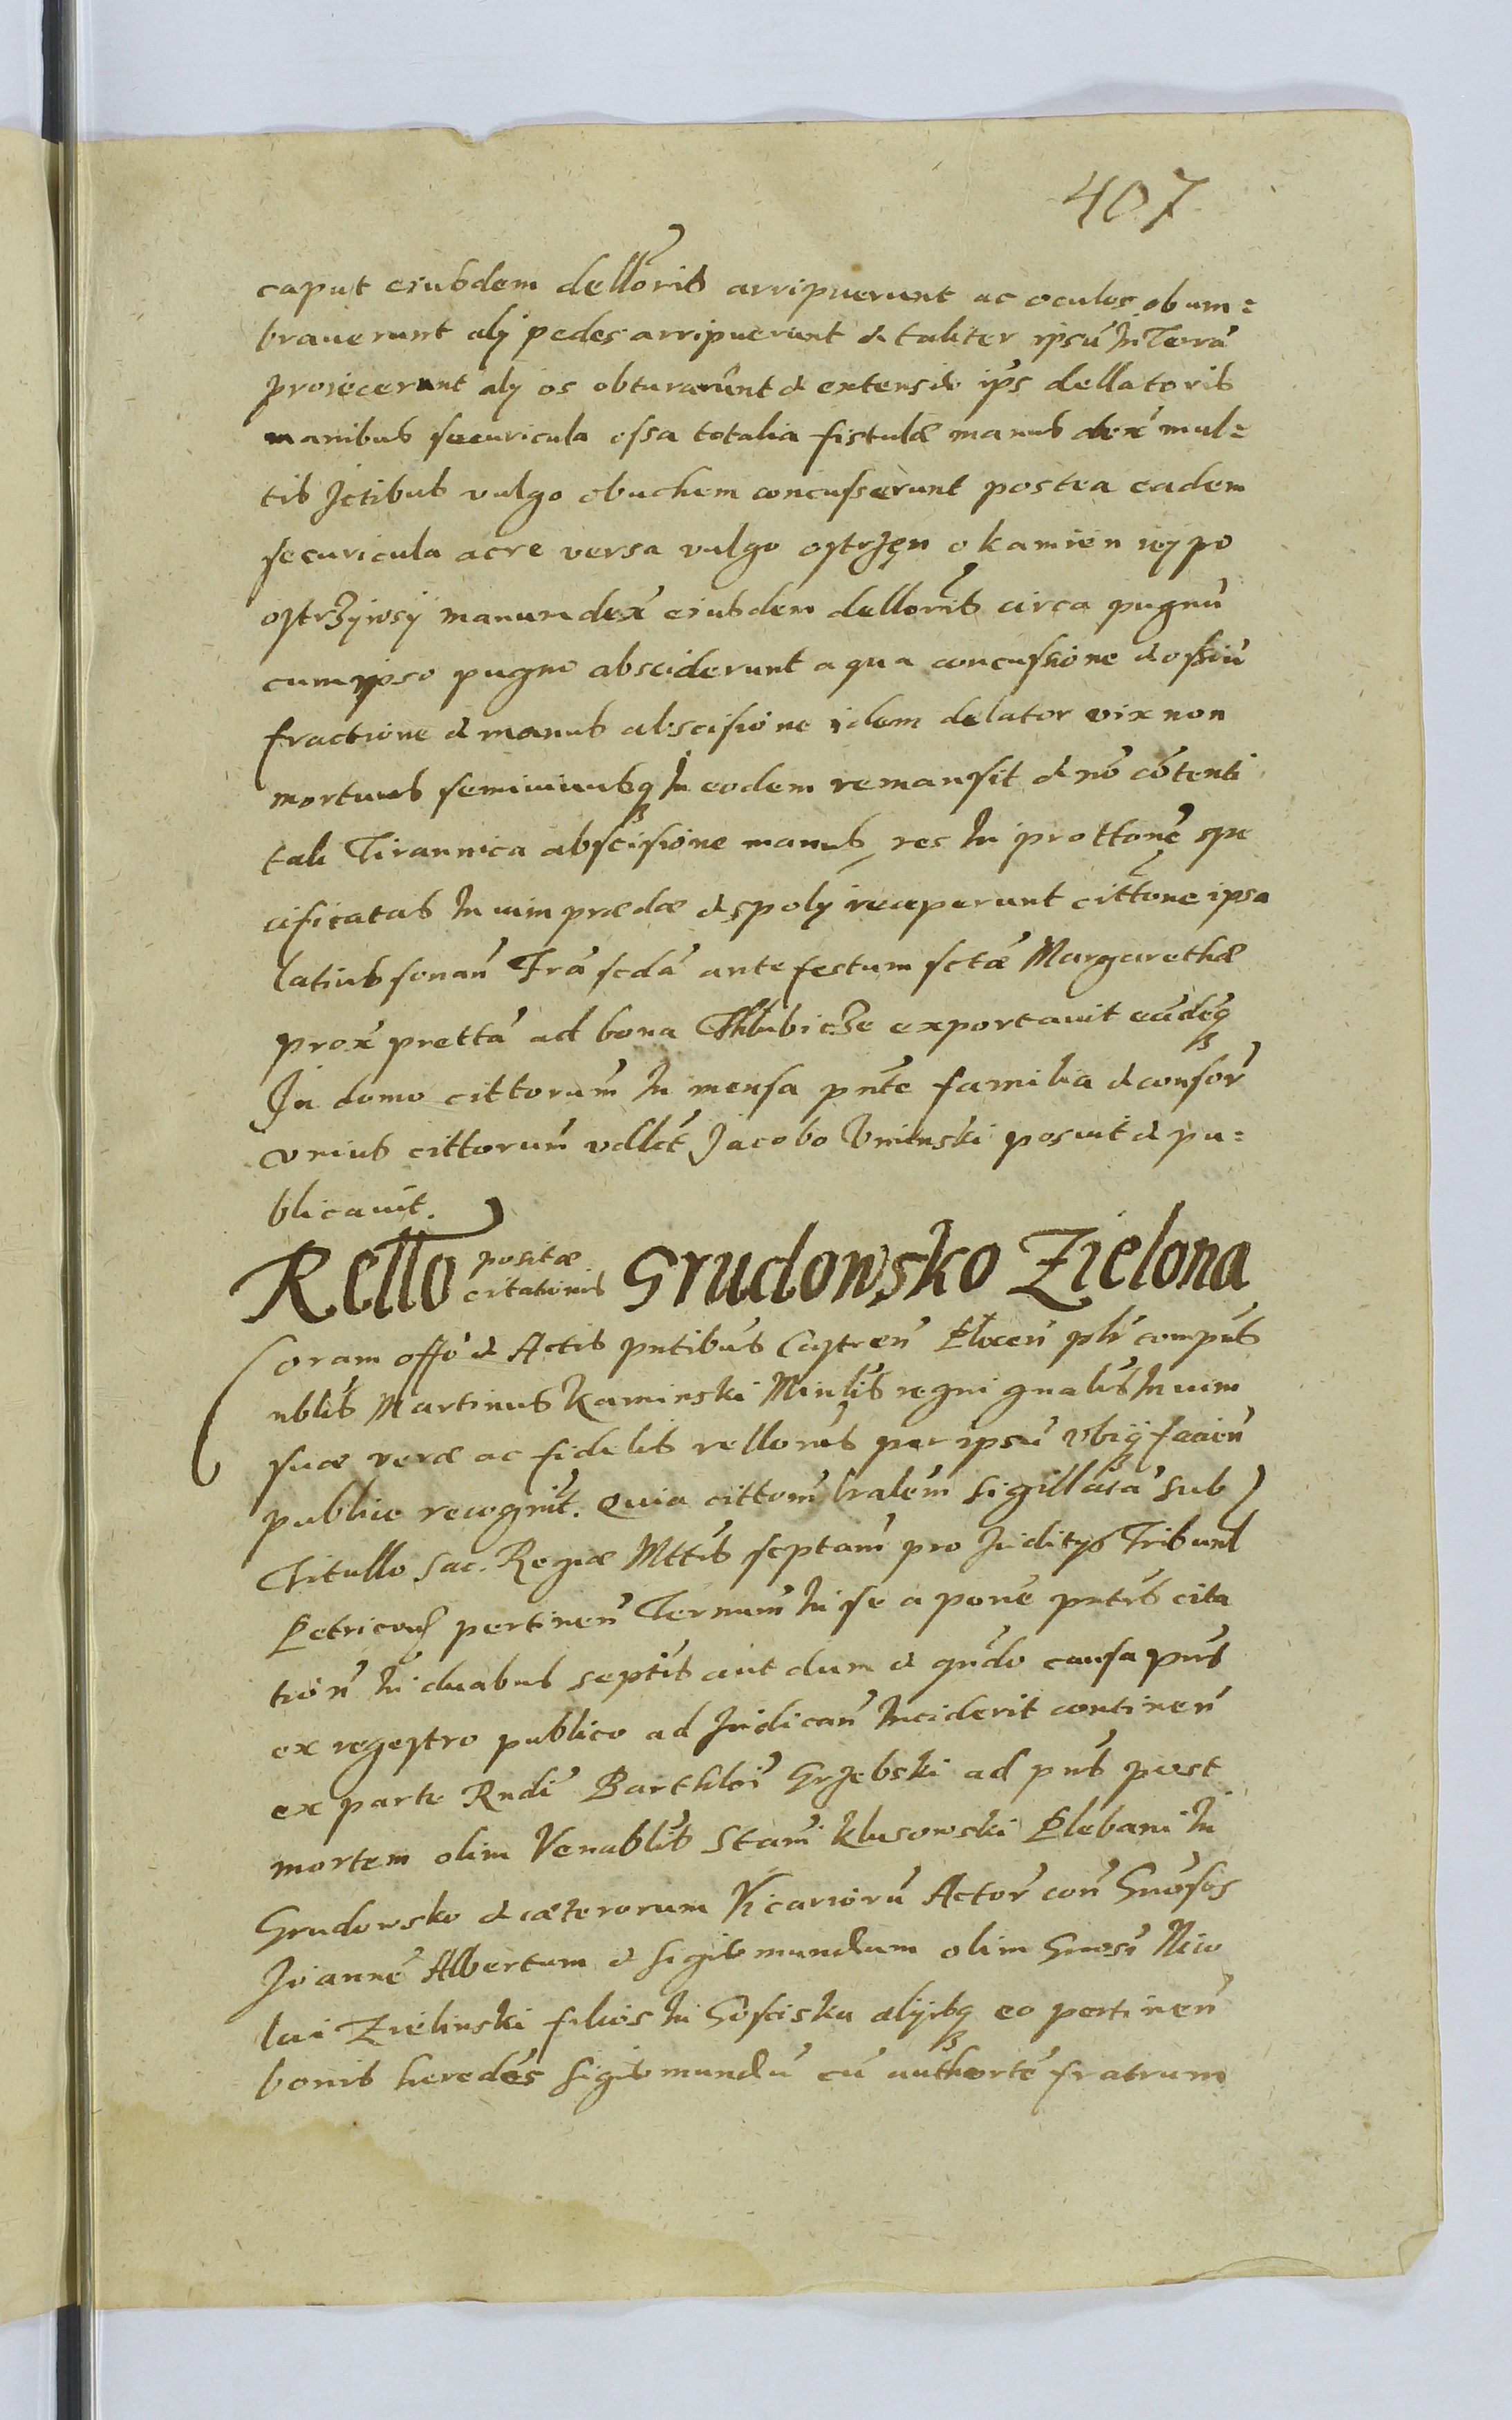 407
caput eiusdem delloris arripuerunt ac oculos obum=
brauerunt alij pedes arripuerunt & taliter ipsũ in Terrã
proiecerunt alij os obturarũnt & extensis ips dellatoris
manibus securicula ossa totalia fistulæ manus dex mul=
tis Ictibus vulgo obuchem concusserunt postea eadem
securicula acre versa vulgo ostrzęn o kamien wypo
ostrzÿwsÿ manum dex eiusdem delloris circa pugnũ
cum ipso pugno absciderunt a qua concussione & ossiũ
fractione & manus abscisione idem delator vix non
mortuus semiuiuusq in eodem remansit & nõ cõtenti
tali Tirannica abscisione manus res in prottone spe
cificatas in uim prædæ & spolij receperunt cittone ipsa
latius sonan Frã scdã ante festum sctæ Margarethæ
prox prettã ad bona exportauit eãdẽq
In domo cittorum in mensa pnte familia & consor
vnius cittorum vdlct Jacobo Vninski posuit & pu=
blicauit.
Rello positæ citationis Grudowsko Zielona
Coram offo & Actis pntibus Castren Plocen plr compns
nblis Martinus Kaminski Minlis regni gnalis in uim
suæ veræ ac fidelis relloris per ipsũ vbiq facien
publice recognit. Quia cittom lralem sigillatã sub
Titullo Sac. Regiæ Mttis septam pro Juditijs Tribunl
Petricou pertinen Termum in se a pone pntis cita
tion in duabus septis aut dum & qndo causa pns
ex regestro publico ad Judican inciderit continen
ex parte Rndi Barthloi Grzebski ad pns post
mortem olim Venablis Stani Klusowski Plebani in
Grudowsko & cæterorum Vicariorũ Actor con Gnosos
Joannẽ Albertum & Sigismundum olim Gnosi Nico
lai Zielinski filios in Gosciska alijsbq eo pertinen
bonis heredes Sigismundũ cũ authorte fratrum